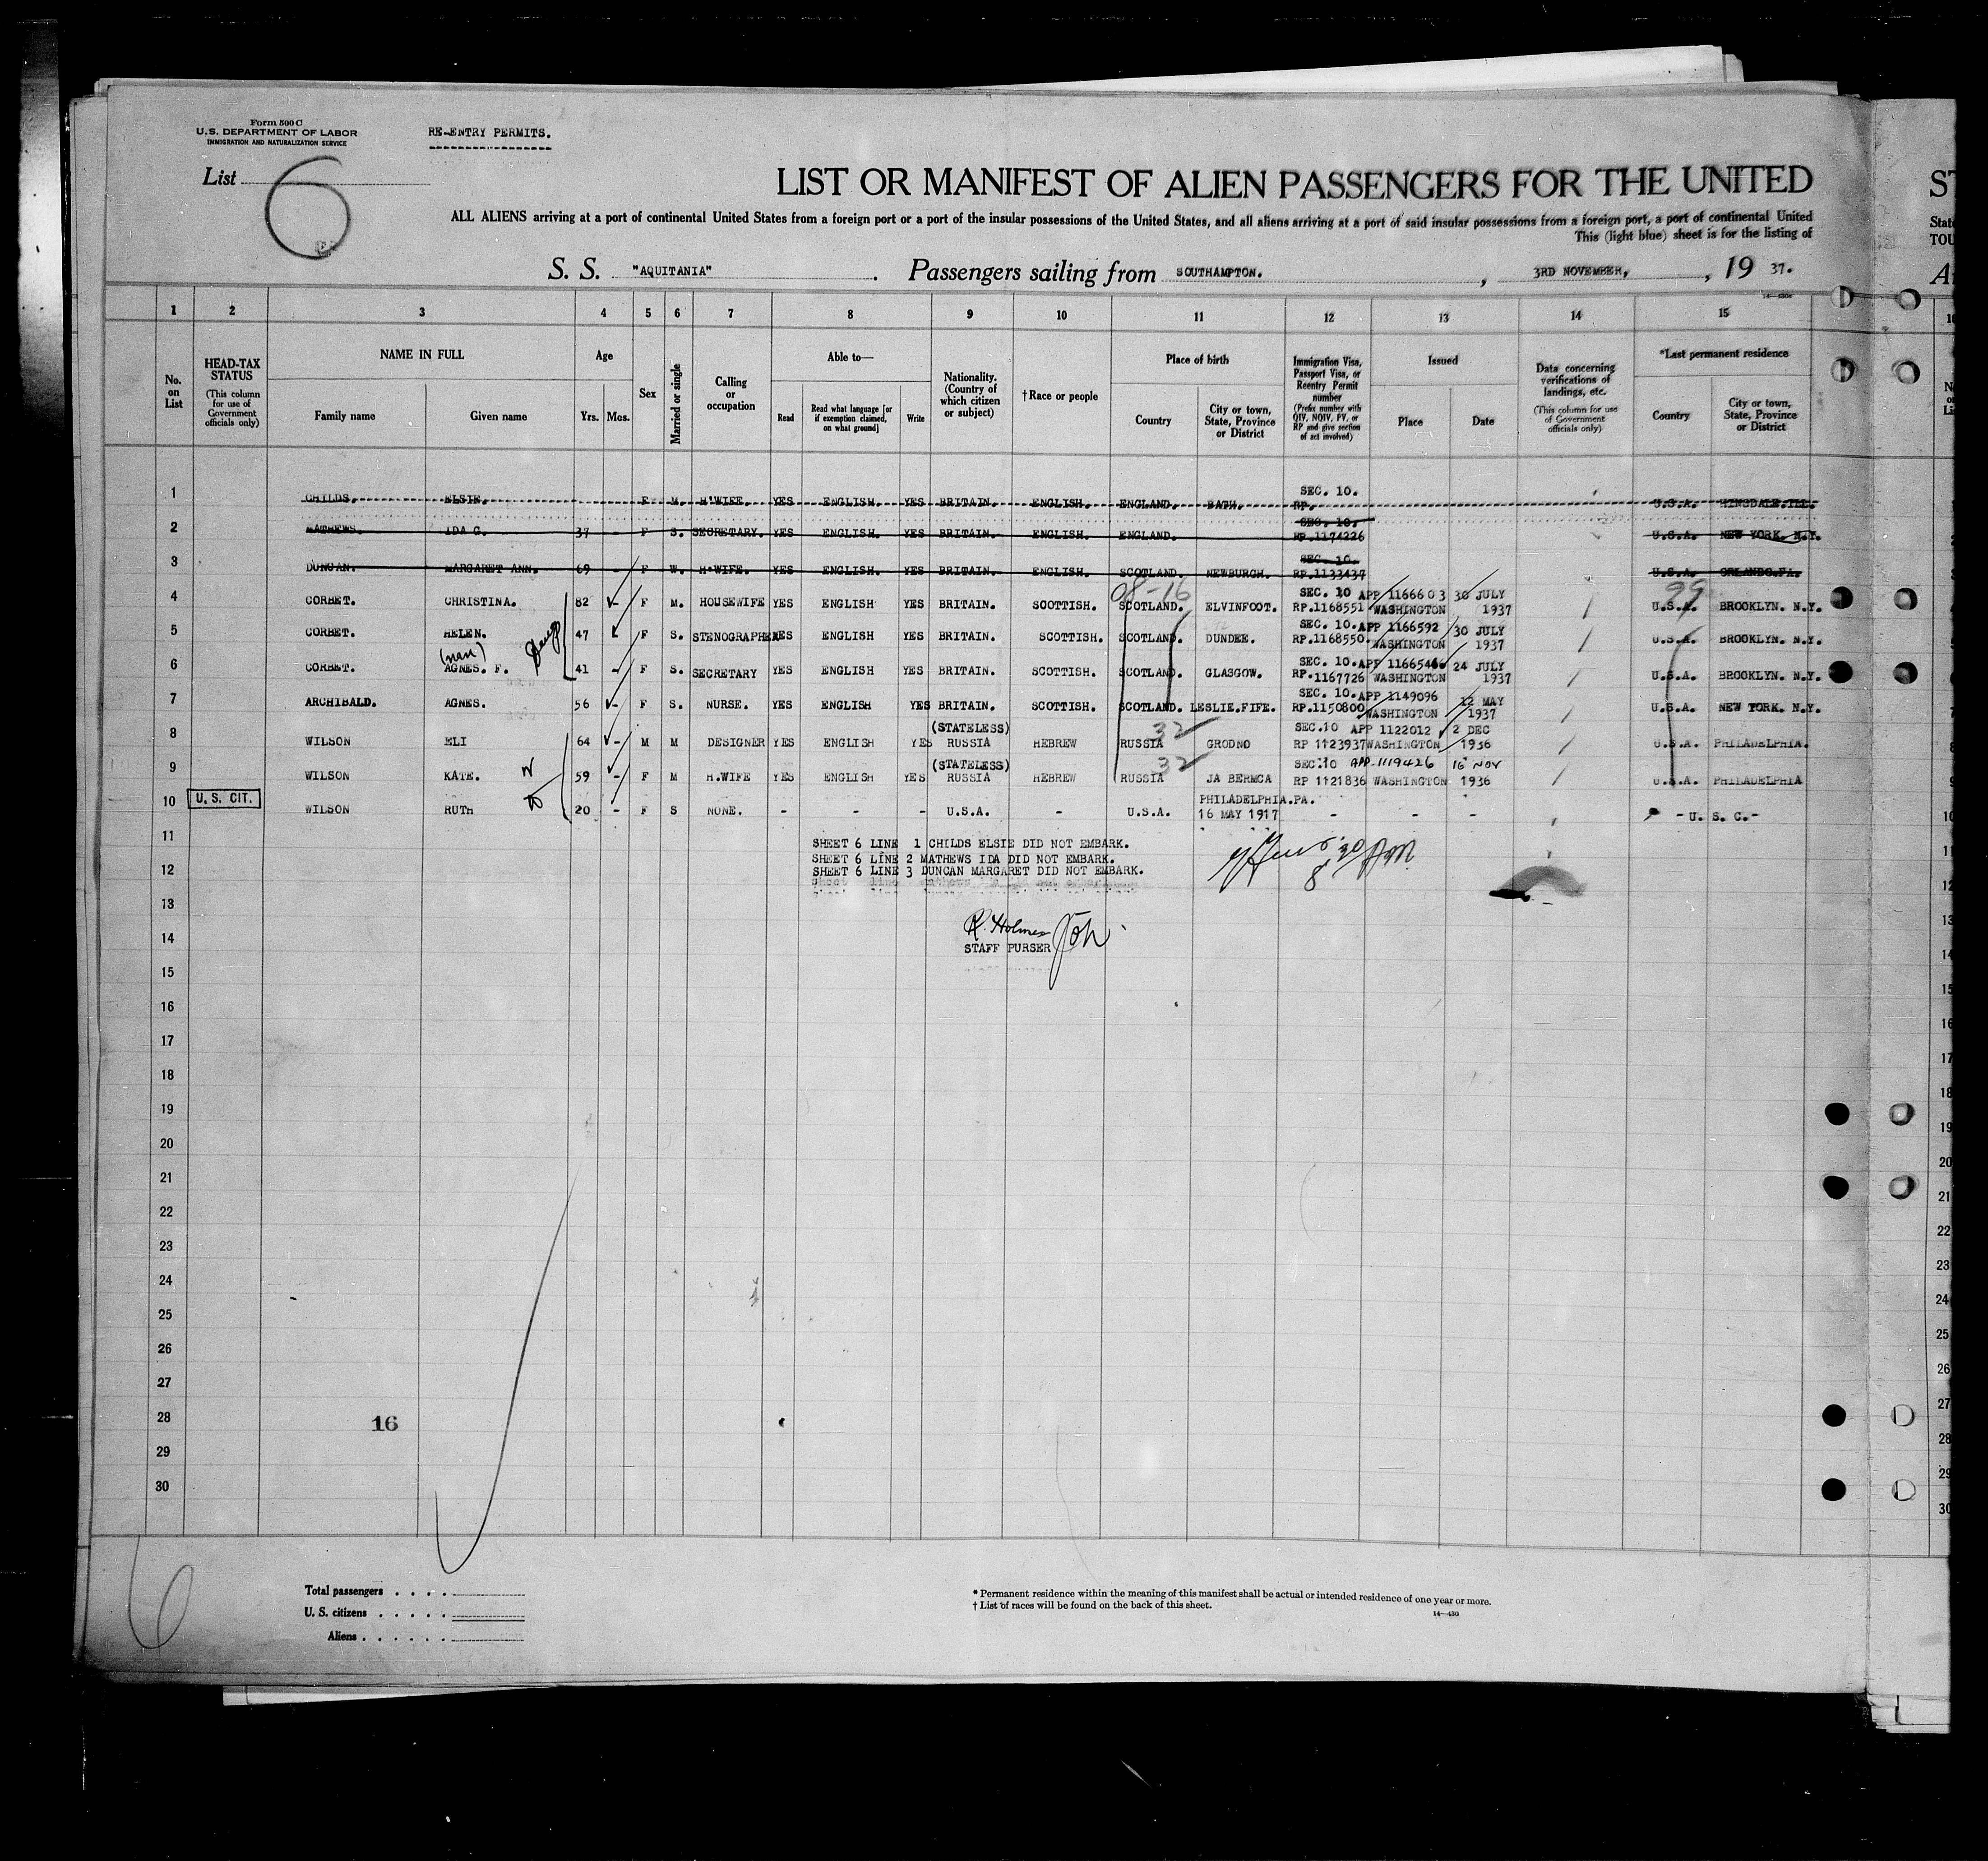 Form 500 C
U.S. DEPARTMENT OF LABOR
IMMIGRATION AND NATURALIZATION SERVICE
RE-ENTRY PERMITS.
List 6
LIST OR MANIFEST OF ALIEN PASSENGERS FOR THE UNITED
ST
ALL ALIENS arriving at a port of continental United States from a foreign port or a port of the insular possessions of the United States, and all aliens arriving at a port of said insular possessions from a foreign port, a port of continental United
State
This (light blue) sheet is for the listing of
TOU
S. S. "AQUITANIA" . Passengers sailing from SOUTHAMPTON. , 3RD NOVEMBER, , 19 37.
1 2 3 4 5 6 7 8 9 10 11 12 13 14 15
No. on List
HEAD-TAX STATUS (This column for use of Government officials only)
NAME IN FULL
Family name Given name
Age
Yrs. Mos.
Sex
Married or single
Calling or occupation
Able to—
Read Read what language [or if exemption claimed, on what ground] Write
Nationality. (Country of which citizen or subject)
†Race or people
Place of birth
Country City or town, State, Province or District
Immigration Visa, Passport Visa, or Reentry Permit number (Prefix number with QIV, NQIV, PV, or RP and give section of act involved)
Issued
Place Date
Data concerning verifications of landings, etc. (This column for use of Government officials only)
*Last permanent residence
Country City or town, State, Province or District
1 CHILDS. ELSIE. F M. H'WIFE. YES ENGLISH. YES BRITAIN. ENGLISH. ENGLAND. BATH. SEC. 10. RP. U.S.A. HINSDALE.ILL.
2 MATHEWS. IDA G. 37 - F S. SECRETARY. YES ENGLISH. YES BRITAIN. ENGLISH. ENGLAND. SEC. 10. RP.1174226 U.S.A. NEW YORK. N.Y.
3 DUNCAN. MARGARET ANN. 69 - F W. H'WIFE. YES ENGLISH. YES BRITAIN. ENGLISH. SCOTLAND. NEWBURGH. SEC. 10. RP.1133437 U.S.A. ORLANDO.FA.
08-16
99
4 CORBET. CHRISTINA. 82 - F M. HOUSEWIFE YES ENGLISH YES BRITAIN. SCOTTISH. SCOTLAND. ELVINFOOT. SEC. 10 APP 1166603 30 JULY RP.1168551 WASHINGTON 1937 U.S.A. BROOKLYN. N.Y.
5 CORBET. HELEN. 47 F S. STENOGRAPHER YES ENGLISH YES BRITAIN. SCOTTISH. SCOTLAND. DUNDEE. SEC. 10. APP 1166592 30 JULY RP.1168550. WASHINGTON 1937 U.S.A. BROOKLYN. N.Y.
(nan)
Daugs
6 CORBET. AGNES. F. 41 - F S. SECRETARY YES ENGLISH YES BRITAIN. SCOTTISH. SCOTLAND. GLASGOW. SEC. 10. APP 24 JULY RP.1167726 WASHINGTON 1937 U.S.A. BROOKLYN. N.Y.
7 ARCHIBALD. AGNES. 56 - F S. NURSE. YES ENGLISH YES BRITAIN. SCOTTISH. SCOTLAND. LESLIE.FIFE. SEC. 10. APP 1149096 12 MAY RP.1150800 WASHINGTON 1937 U.S.A. NEW YORK. N.Y.
8 WILSON ELI 64 - M M DESIGNER YES ENGLISH YES (STATELESS) RUSSIA HEBREW 32 RUSSIA GRODNO SEC.10 APP 1122012 2 DEC RP 1123937 WASHINGTON 1936 U.S.A. PHILADELPHIA.
9 WILSON KATE. W 59 - F M H.WIFE YES ENGLISH YES (STATELESS) RUSSIA HEBREW 32 RUSSIA JA BERMCA SEC.10 APP-1119426 16 NOV RP 1121836 WASHINGTON 1936 U.S.A. PHILADELPHIA
10 U.S. CIT. WILSON RUTH D 20 - F S NONE. - - - U.S.A. - U.S.A. PHILADELPHIA.PA. 16 MAY 1917 - - - - U. S. C.-
11 SHEET 6 LINE 1 CHILDS ELSIE DID NOT EMBARK.
SHEET 6 LINE 2 MATHEWS IDA DID NOT EMBARK.
12 SHEET 6 LINE 3 DUNCAN MARGARET DID NOT EMBARK.
13
R. Holmes
14 STAFF PURSER
15
16
17
18
19
20
21
22
23
24
25
26
27
28 16
29
30
6
Total passengers
U. S. citizens
Aliens
* Permanent residence within the meaning of this manifest shall be actual or intended residence of one year or more.
† List of races will be found on the back of this sheet.
14—430